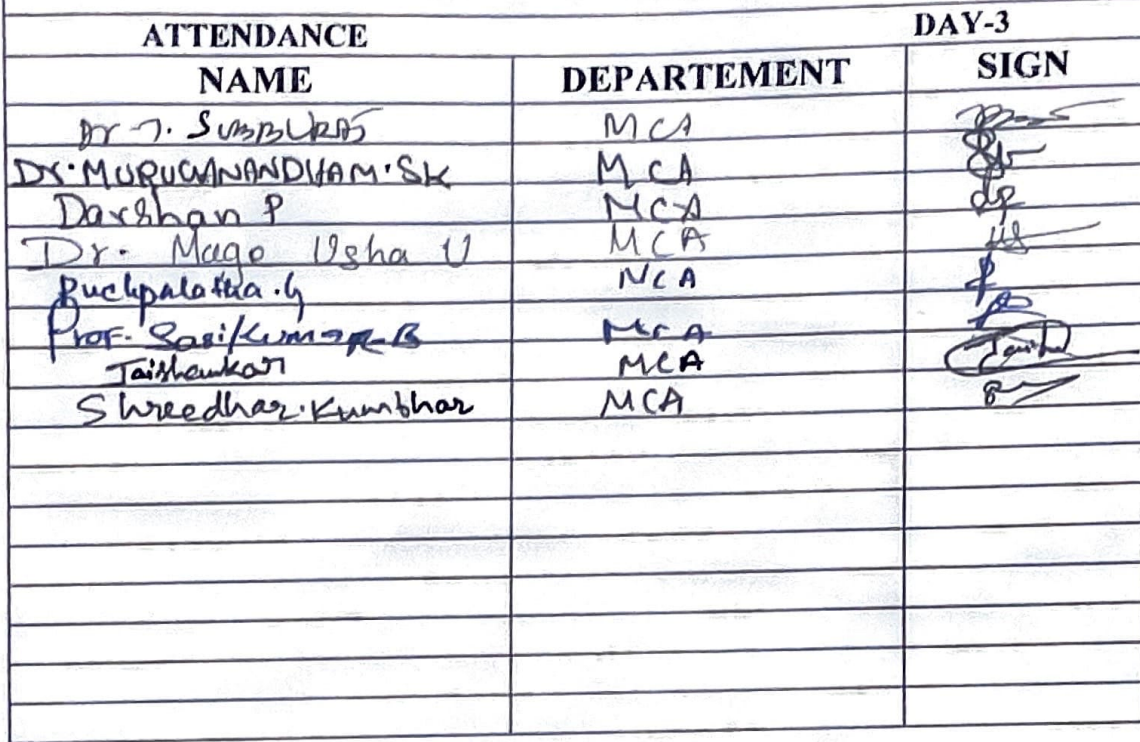 ATTENDANCE DAY-3
NAME DEPARTEMENT SIGN
Dr. T. SUBBURAJ MCA
Dr. MURUGANANDHAM. SK MCA
Darshan P MCA
Dr. Mago Usha U MCA
MCA
Prof. Sasikumar B MCA
Jaishankar MCA
Shreedhar. Kumbhar MCA